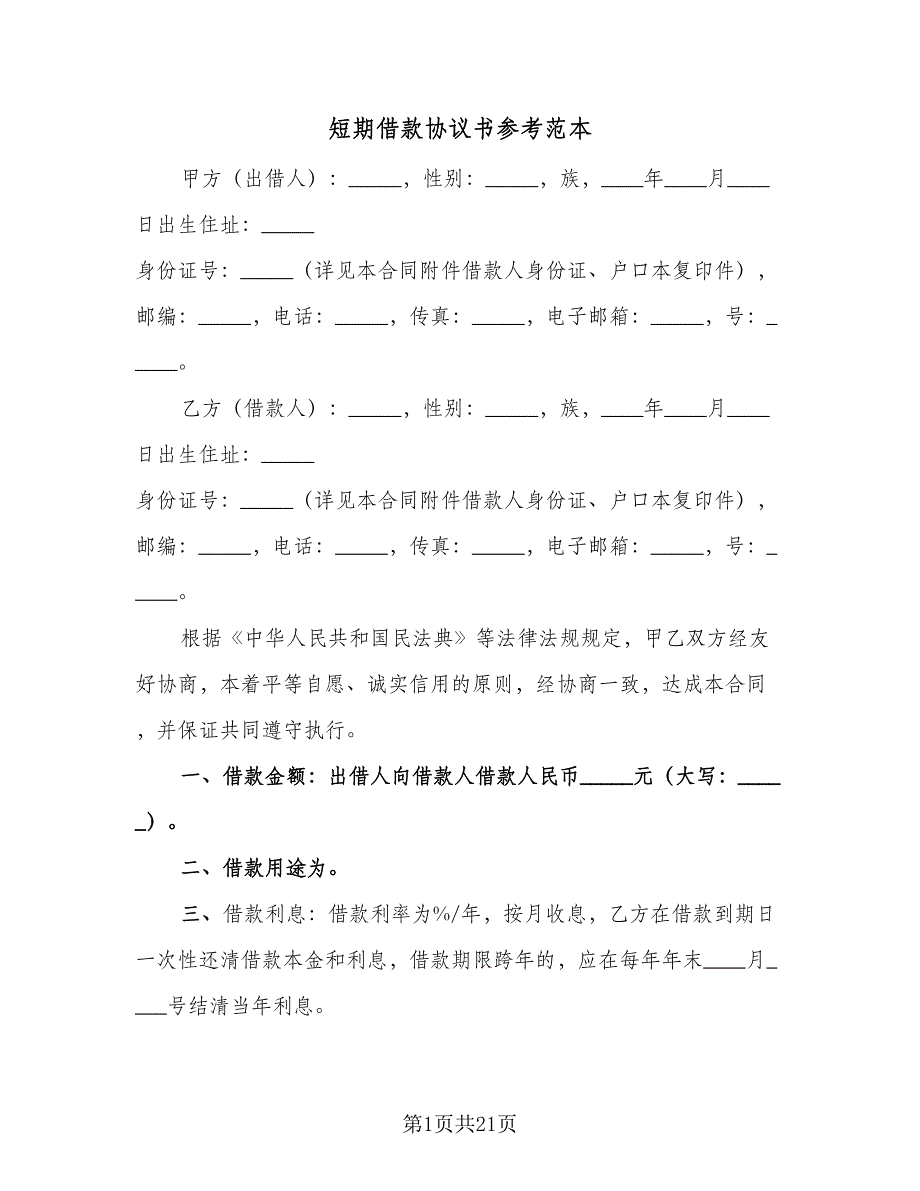 短期借款协议书参考范本
甲方（出借人）：_____，性别：_____，族，____年____月____
日出生住址：_____
身份证号：_____（详见本合同附件借款人身份证、户口本复印件），
邮编：_____，电话：_____，传真：_____，电子邮箱：_____，号：_
____。
乙方（借款人）：_____，性别：_____，族，____年____月____
日出生住址：_____
身份证号：_____（详见本合同附件借款人身份证、户口本复印件），
邮编：_____，电话：_____，传真：_____，电子邮箱：_____，号：_
____。
根据《中华人民共和国民法典》等法律法规规定，甲乙双方经友
好协商，本着平等自愿、诚实信用的原则，经协商一致，达成本合同
，并保证共同遵守执行。
一、借款金额：出借人向借款人借款人民币_____元（大写：____
_）。
二、借款用途为。
三、借款利息：借款利率为%/年，按月收息，乙方在借款到期日
一次性还清借款本金和利息，借款期限跨年的，应在每年年末____月_
___号结清当年利息。
第1页共21页